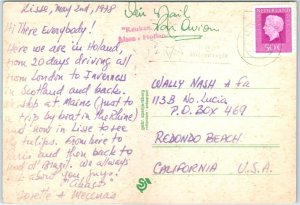 Lisse, May 2nd, 1978
Hi There Everybody!
Here we are in Holand,
from 20 days driving all
from London to Inverness
in Scotland and back.
We stop at Mainz (just to
trip by boat in the Rhine)
and now in Lisse to see
tulips. From here to
Paris and then back to
Brazil. We always
about you, guys!
Mecenas
Via Air Mail
Par Avion
"Keuken
NEDERLAND
50c
WALLY NASH & Fa
113B No. Lucia
P.O. BOX 469
REDONDO BEACH
CALIFORNIA U.S.A.